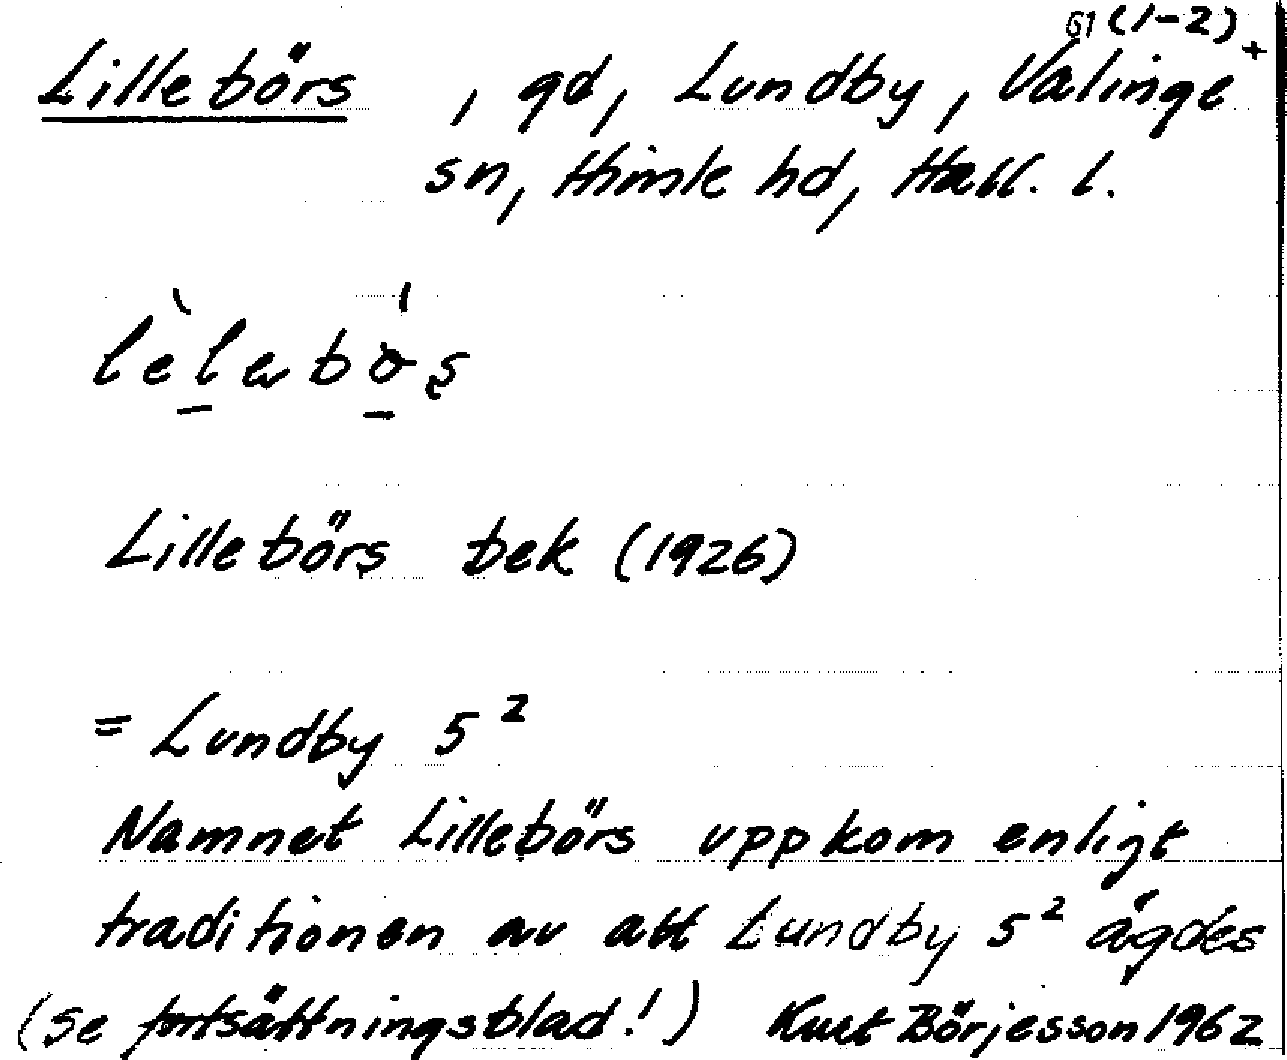 G1 (1-2) +
Lillebörs , gd, Lundby, Valinge
sn, Himle hd, Hall. l.
Lillebörs bek (1926)
= Lundby 5²
Namnet Lillebörs uppkom enligt
traditionen av att Lundby 5² ägdes
(se fortsättningsblad!) Kurt Börjesson 1962